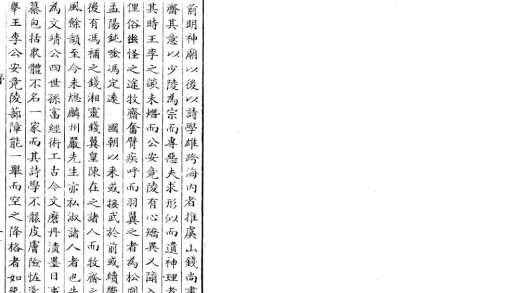 前明神廟以後以詩學雄跨海内者推虞山錢尚書
齋其意以少陵為宗而專惡夫求形似而遺神理者
其時王李之燄未熸而公安竟陵有心矯異又蹈入
俚俗幽怪之途牧齋奮臂疾呼而羽翼之者為松圓
孟陽鈍唫馮定遠 國朝以來或接武於前或續響
後有馮補之錢湘靈錢翼皇陳在之諸人而牧齋之
風餘韻至今未熄麟州嚴先生亦私淑諸人者也先
為文靖公四世孫富經術工古今文磨丹漬墨日事
纂包括衆體不名一家而其詩學不襲皮膚險怪
擧王李公安竟陵蔀障能一舉而空之降格者如